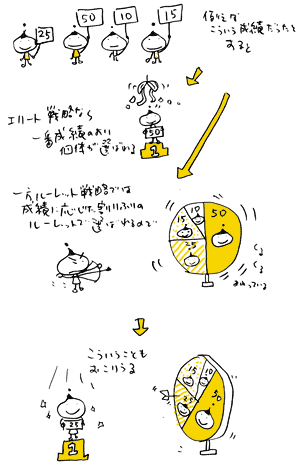 25
50
10
15
個性が
こういう成績だったと
すると
エリート戦略なら
一番成績のよい
個体が選ばれる
50
1
一方ルーレット戦略では
成績に応じた割りふりの
ルーレットで選ばれるので
15
10
50
25
くる
くる
まわっている
こういうことも
おこりうる
25
1
15
10
25
50